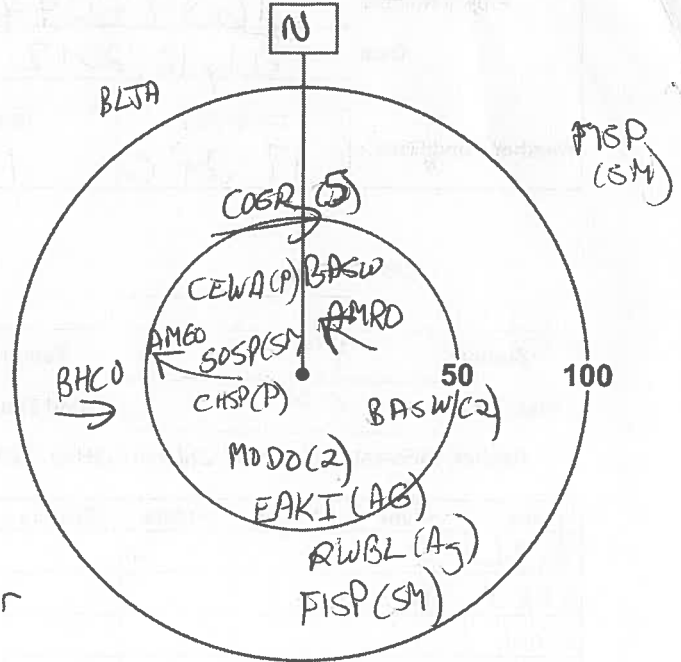 N
BLJA
FISP
(SM)
COGR (5)
CEWA(P) BASW
AMRO
AMGO
SOSP(SM
BHCO
CHSP(P)
50
100
BASW(2)
MODO(2)
EAKI (AG)
RWBL (Ag)
FISP (SM)
r